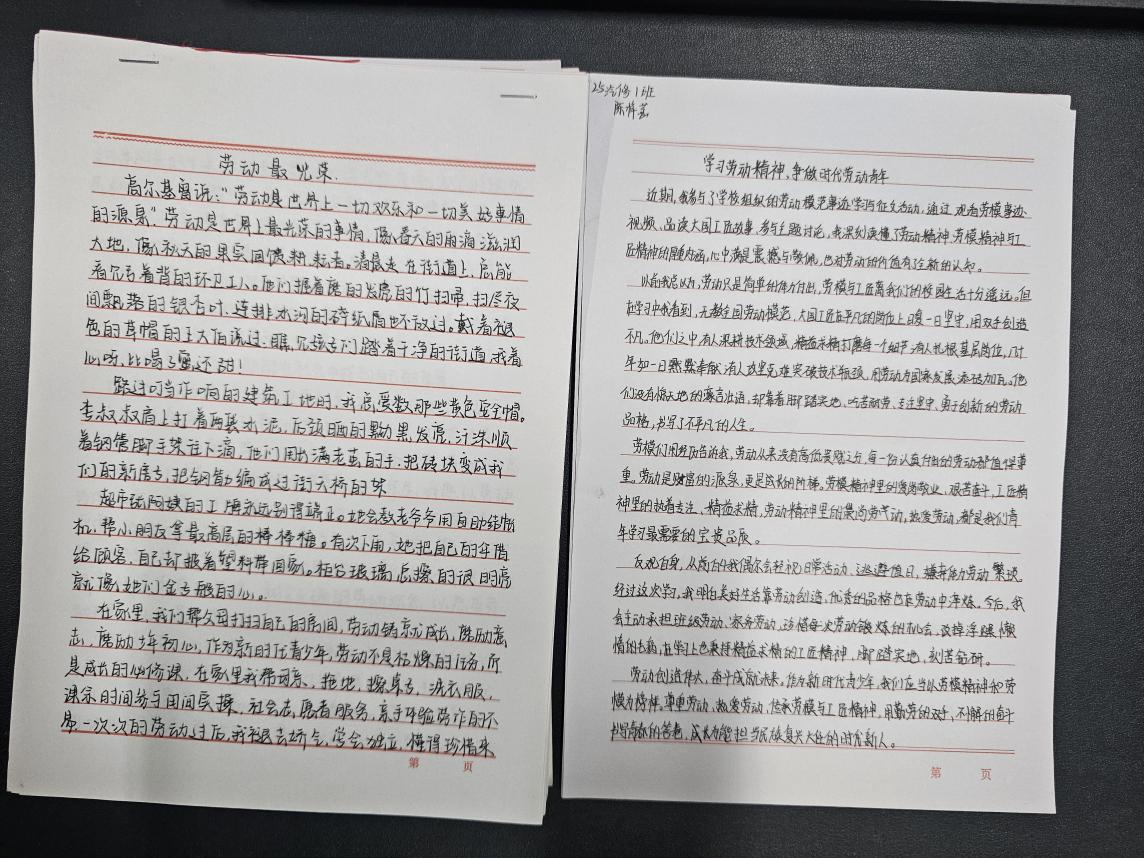 劳动最光荣.
高尔基曾说:"劳动是世界上一切欢乐和一切美好事情
的源泉"劳动是世界上最光荣的事情,像春天的雨滴滋润
大地,像秋天的果实回馈耕耘者。清晨走在街道上,总能
看见弓着背的环卫工人。他们握着磨的发亮的竹扫帚,扫尽夜
间飘落的银杏叶,连排水沟的碎纸屑也不放过。戴着褪
色的草帽的王大伯说过:瞧见孩子们踏着干净的街道,我着
心呀,比喝了蜜还甜!
路过叮当作响的建筑工地时,我总爱数那些黄色安全帽。
李叔叔肩上打着两袋水泥,后颈晒的黝黑发亮,汗珠顺
着钢管脚手架往下滴,他们用出满老茧的手,把砖块变成我
们的新房子,把钢筋编成过街天桥的
超市 阿姨的工牌永远别得端正。她会教老爷爷用自助结账
机,帮小朋友拿最高层的棒棒糖。有次下雨,她把自己的伞借
给顾客,自己却披着塑料带回家。柜台玻璃总擦的很明亮
就像她们金子般的心。
在家里,我们帮父母打扫自己的房间,劳动铸就成长,磨励意
志,磨励少年初心,作为新时代青少年,劳动不是枯燥的任务,而
是成长的必修课,在家里我帮 ,拖地,擦桌子,洗衣服,
课余时间参与田间 ,社会志愿者服务,亲手体验劳作的不
易一次次的劳动过后,我褪去娇气,学会独立,懂得珍惜来
第 页
25汽修1班
陈梓
学习劳动精神,争做时代劳动青年
近期,我参与了学校组织的劳动模范事迹学习与征文活动,通过观看劳模事迹
视频、品读大国工匠故事、参与主题讨论,我深刻读懂了劳动精神、劳模精神与工
匠精神的厚重内涵,心中满是震撼与敬佩,也对劳动的价值有了全新的认知。
以前我总以为,劳动只是简单的体力付出,劳模与工匠离我们的校园生活十分遥远。但
在学习中我看到,无数全国劳动模范、大国工匠在平凡的岗位上日复一日坚守,用双手创造
不凡。他们之中有人深耕技术领域,精益求精打磨每一个细节;有人扎根基层岗位,几十
年如一日默默奉献;有人攻坚克难突破技术瓶颈,用劳动为国家发展添砖加瓦。他
们没有惊天地的豪言壮语,却靠着脚踏实地、吃苦耐劳、专注坚守、勇于创新的劳动
品格,书写了不平凡的人生。
劳模们用经历告诉我,劳动从来没有高低贵贱之分,每一份认真付出的劳动都值得尊
重。劳动是财富的源泉,更是成长的阶梯。劳模精神里的爱岗敬业、艰苦奋斗,工匠精
神里的执着专注、精益求精,劳动精神里的崇尚劳动、热爱劳动,都是我们青
年学习最需要的宝贵品质。
反观自身,从前的我偶尔会轻视日常活动、逃避值日,嫌弃体力劳动繁琐。
经过这次学习,我明白美好生活靠劳动创造,优秀的品格也在劳动中淬炼。今后,我
会主动承担班级劳动、家务劳动,珍惜每次劳动锻炼的机会,改掉浮躁懒
惰的毛病,在学习上也秉持精益求精的工匠精神,脚踏实地、刻苦钻研。
劳动创造伟大,奋斗成就未来。作为新时代青少年,我们应当以劳模精神和劳
模为榜样。尊重劳动、热爱劳动,传承劳模与工匠精神,用勤劳的双手,不懈的奋斗
书写青春的答卷,成长为能担当民族复兴大任的时代新人。
第 页